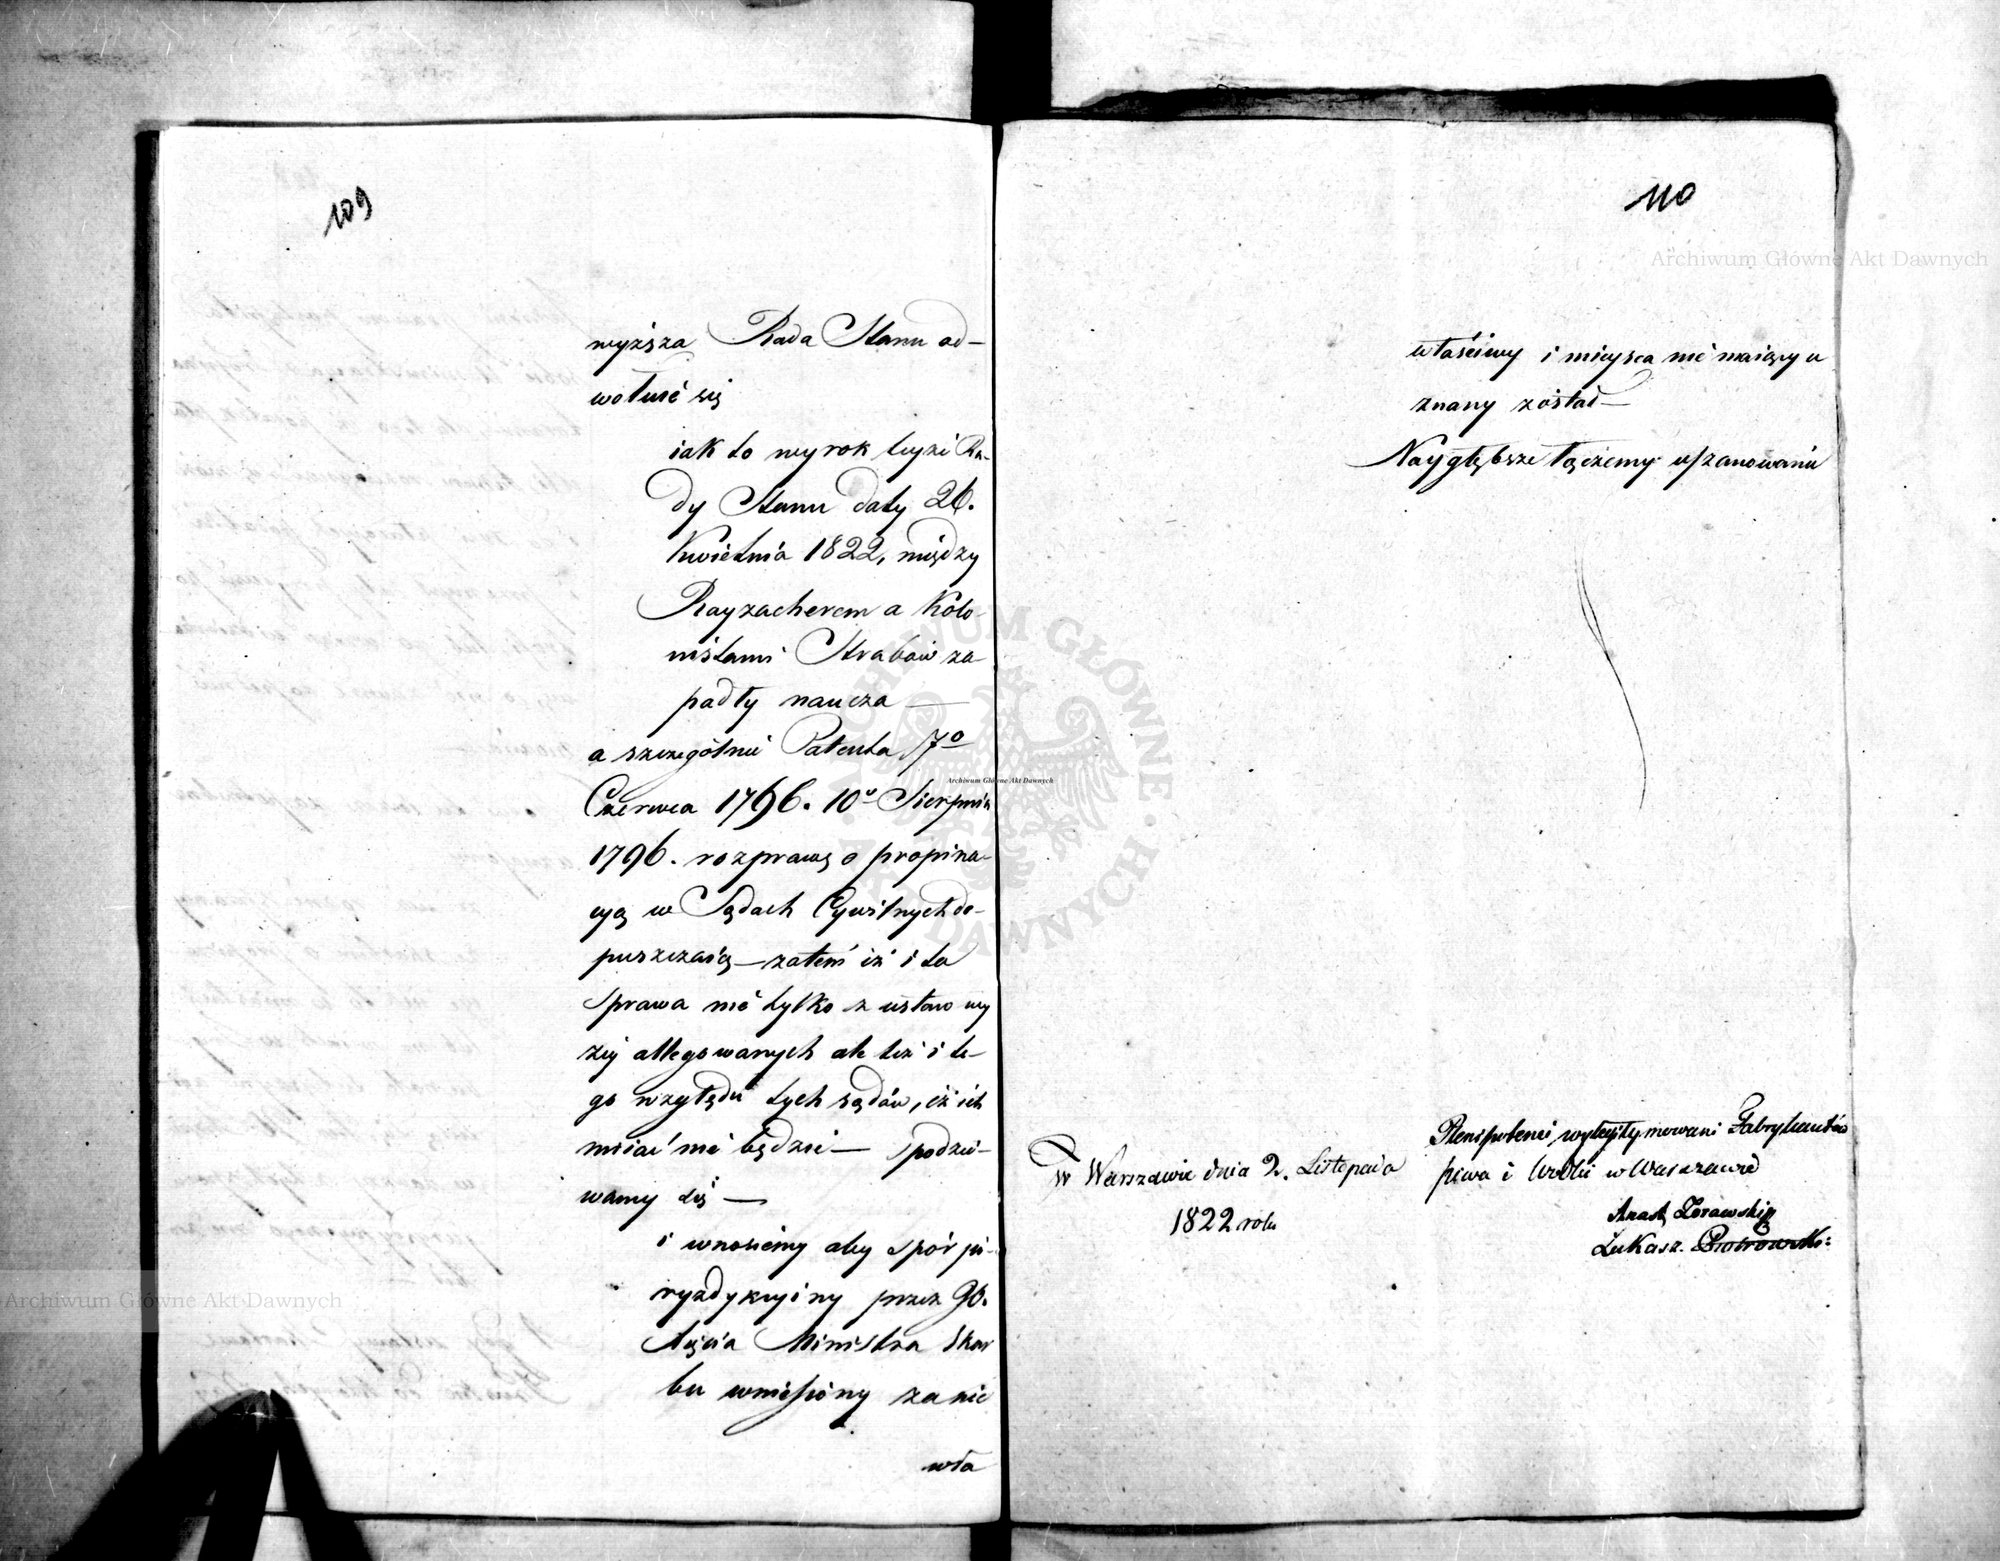 109
wyższa Rada Stanu od-
wołuie się
iak to wyrok teyże Ra-
dy Stanu daty 26.
Kwietnia 1822, między
Rayzacherem a Kolo-
nistami Strabów za-
padły naucza —
a szczególnie Patenta 7º
Czerwca 1796. 10º Sierpnia
1796. rozprawę o propina-
cyą w Sądach Cywilnych do-
puszczaią — zatem iż i ta
sprawa nie tylko z ustaw wy
żéy allegowanych ale też i te-
go względu tych sądów, iż ich
miiać nie będzie — spodzie-
wamy się —
i wnosiemy aby spór ju-
ryzdykcyiny przez JO.
Xięcia Ministra Skar
bu wniesiony za nie
wła
110
właściwy i mieysca nie maiący u
znany został —
Naygłębsze łączemy uszanowanie
W Warszawie dnia 2. Listopada
1822 roku
Plenipotenci wylegitymowani Fabrykantów
piwa i Wódki w Warszawie
Anast Żórawski
Łukasz. Piotrowski
Archiwum Główne Akt Dawnych
Archiwum Główne Akt Dawnych
Archiwum Główne Akt Dawnych
ARCHIWUM GŁÓWNE AKT DAWNYCH